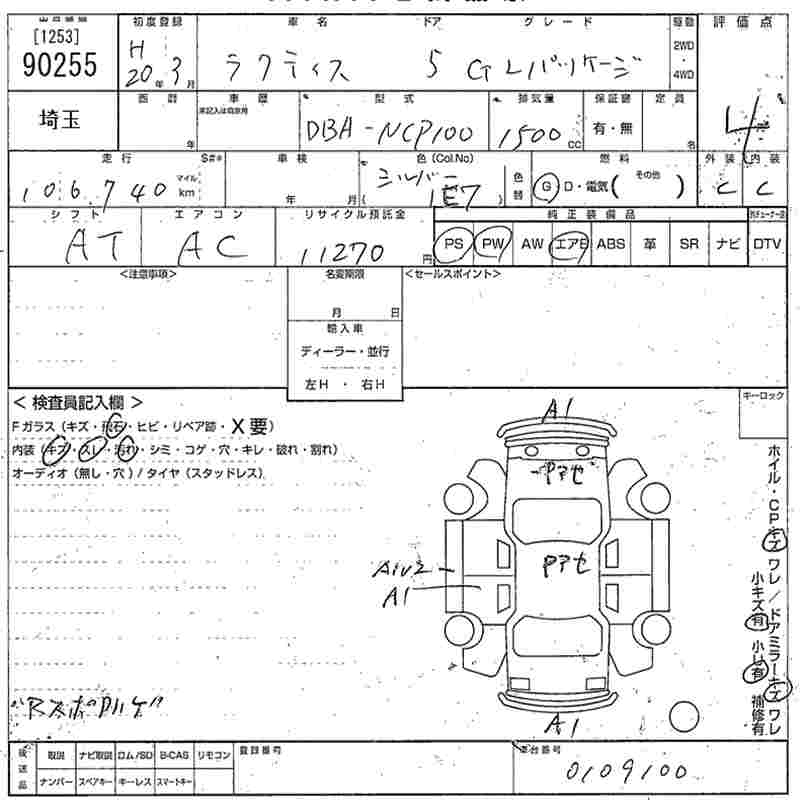 [1253]
90255
初度登録 車名 ドア グレード 駆動 評価点
H20年3月 ラクティス 5 G Lパッケージ 2WD・4WD
4
埼玉
西暦 車歴 型式 排気量 保証書 定員
年 未記入は自家用 DBA-NCP100 1500cc 有・無 名
走行 S#* 車検 色(Col.No) 燃料 外装 内装
106,740 マイル km 年 月 シルバー 1E7 色替 G D・電気( その他 ) C C
シフト エアコン リサイクル預託金 純正装備品
AT AC 11270円 PS PW AW エアB ABS 革 SR ナビ DTV
<注意事項> 名変期限 <セールスポイント>
月 日
輸入車
ディーラー・並行
左H・右H
<検査員記入欄> キーロック
Fガラス(キズ・飛石・ヒビ・リペア跡・X要)
内装(キズ・スレ・汚れ・シミ・コゲ・穴・キレ・破れ・割れ)
オーディオ(無し・穴)/タイヤ(スタッドレス)
A1
Pアセ
Pアセ
A1U2
A1
A1
ホイル・CPキズ ワレ/ドアミラーキズ ワレ
小キズ有 小凹有 補修有
後送品 取説 ナビ取説 ロム/SD B-CAS リモコン 登録番号 車台番号
ナンバー スペアキー キーレス スマートキー 0109100